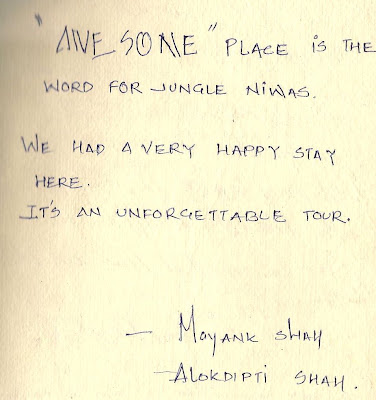 "AWESOME" PLACE IS THE
WORD FOR JUNGLE NIWAS.
WE HAD A VERY HAPPY STAY
HERE.
IT'S AN UNFORGETTABLE TOUR.
— MAYANK SHAH
— ALOKDIPTI SHAH.